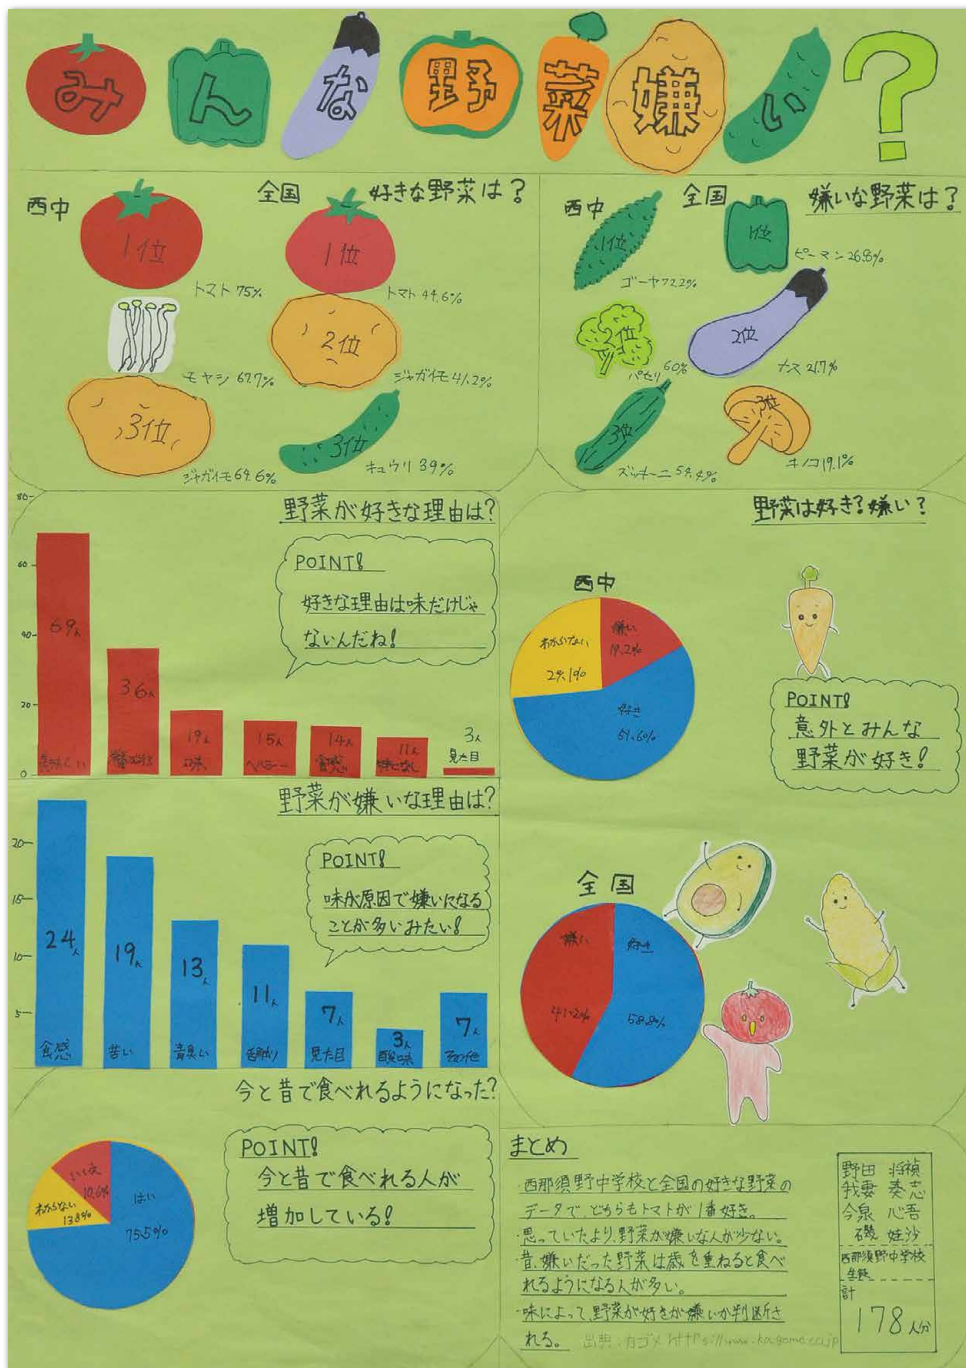 みんな野菜嫌い?
西中
全国
好きな野菜は?
1位
トマト 75%
1位
トマト 44.6%
モヤシ 67.7%
2位
ジャガイモ 41.2%
3位
ジャガイモ 64.6%
3位
キュウリ 39%
西中
全国
嫌いな野菜は?
1位
ゴーヤ 72.2%
1位
ピーマン 26.8%
2位
パセリ 60%
2位
ナス 21.7%
3位
ズッキーニ 54.4%
3位
キノコ 19.1%
野菜が好きな理由は?
80
60
40
20
0
69人
36人
19人
15人
ヘルシー
14人
食感
11人
3人
見た目
POINT!
好きな理由は味だけじゃ
ないんだね!
野菜は好き?嫌い?
西中
嫌い
19.2%
わからない
29.1%
好き
51.6%
POINT!
意外とみんな
野菜が好き!
野菜が嫌いな理由は?
20
15
10
5
24人
食感
19人
苦い
13人
青臭い
11人
7人
見た目
3人
酸味
7人
その他
POINT!
味が原因で嫌いになる
ことが多いみたい!
全国
嫌い
41.2%
好き
58.8%
今と昔で食べれるようになった?
いいえ
10.6%
わからない
13.8%
はい
75.5%
POINT!
今と昔で食べれる人が
増加している!
まとめ
・西那須野中学校と全国の好きな野菜の
データで、どちらもトマトが1番好き。
・思っていたより、野菜が嫌いな人が少ない。
・昔、嫌いだった野菜は歳を重ねると食べ
れるようになる人が多い。
・味によって、野菜が好きか嫌いか判断さ
れる。
出典:カゴメ
野田 将禎
我妻 奏志
今泉 心吾
磯 娃沙
西那須野中学校
生徒
計
178人分